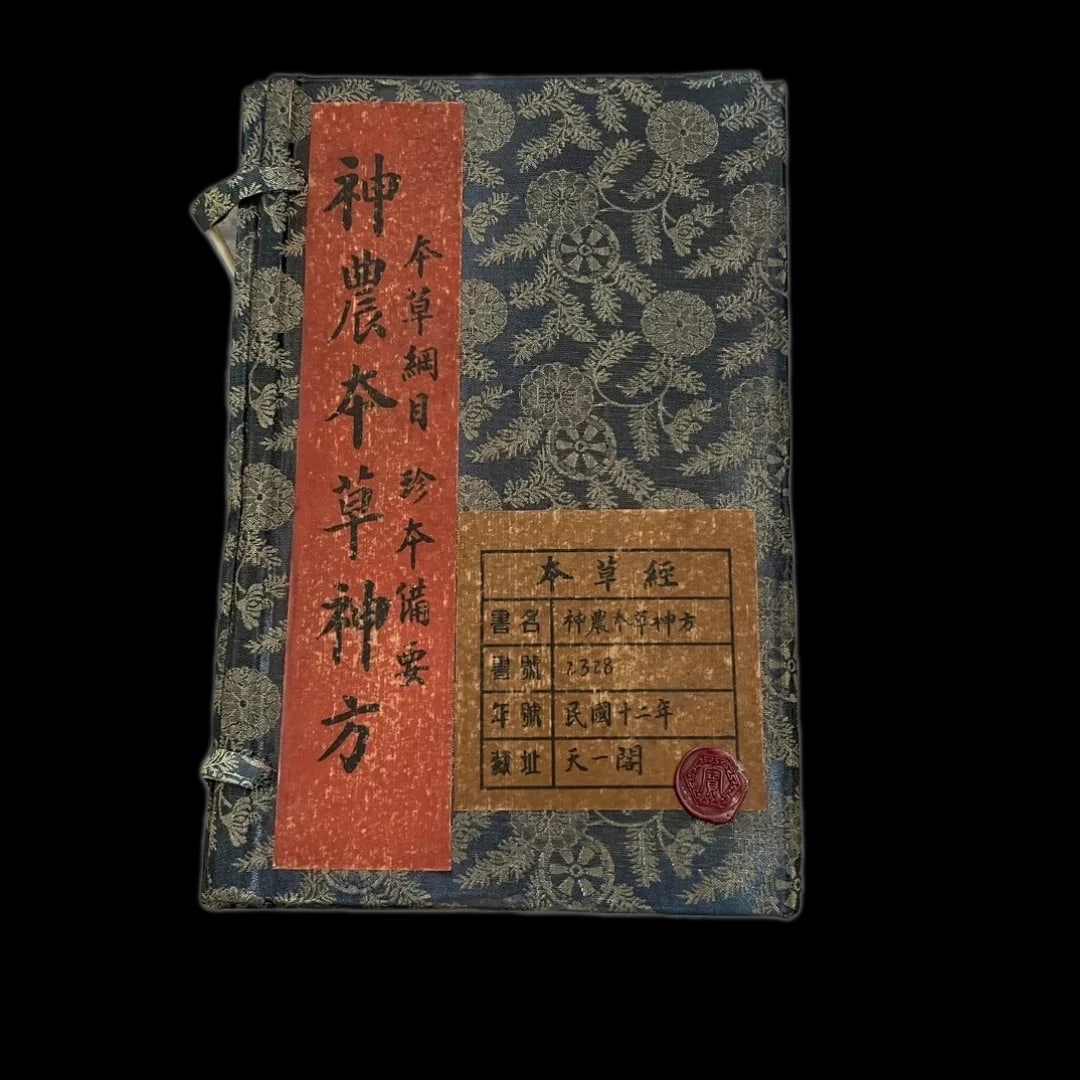 神農本草神方
本草綱目 珍本備要
本草經
書名 神農本草神方
書號 2328
年號 民國十二年
藏址 天一閣
寶